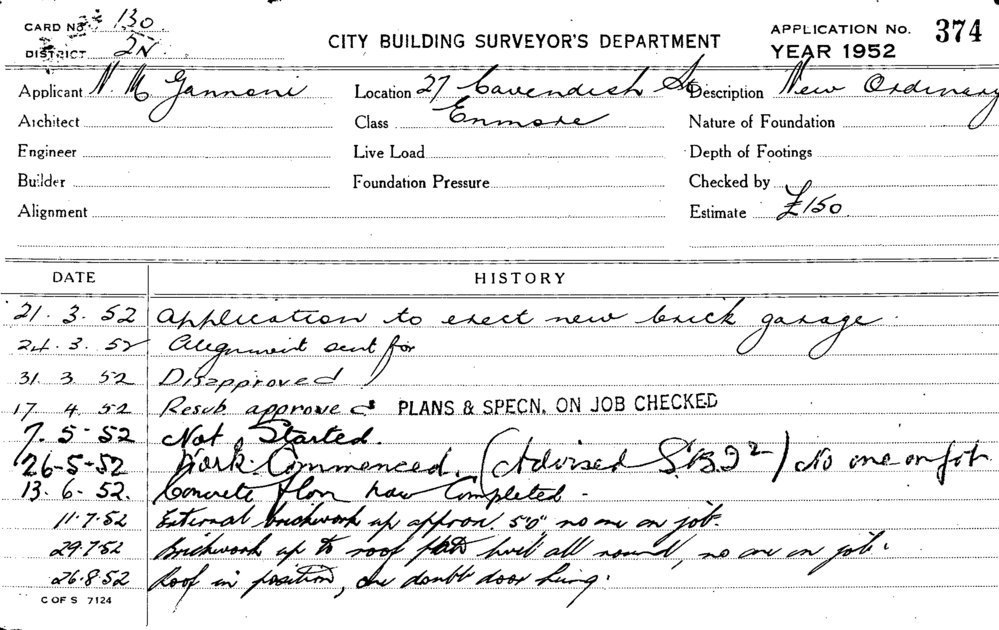 CARD No. 130
DISTRICT 2N
CITY BUILDING SURVEYOR'S DEPARTMENT
APPLICATION No. 374
YEAR 1952
Applicant N. M Gannoni Location 27 Cavendish St Description New Ordinary
Architect Class Enmore Nature of Foundation
Engineer Live Load Depth of Footings
Builder Foundation Pressure Checked by
Alignment Estimate £150
DATE HISTORY
21. 3. 52 Application to erect new brick garage.
24. 3. 52 Alignment sent for
31 3 52 Disapproved
17 4. 52 Resub approved PLANS & SPECN. ON JOB CHECKED
7. 5-52 Not Started.
26-5-52 Work Commenced. (Advised S.B.I 2) No one on job.
13. 6. 52. Concrete floor now Completed -
11.7.52 External brickwork up approx. 5'0", no one on job.
29.7.52 Brickwork up to roof plate level all round, no one on job.
26.8.52 Roof in position, one double door hung.
C OF S 7124